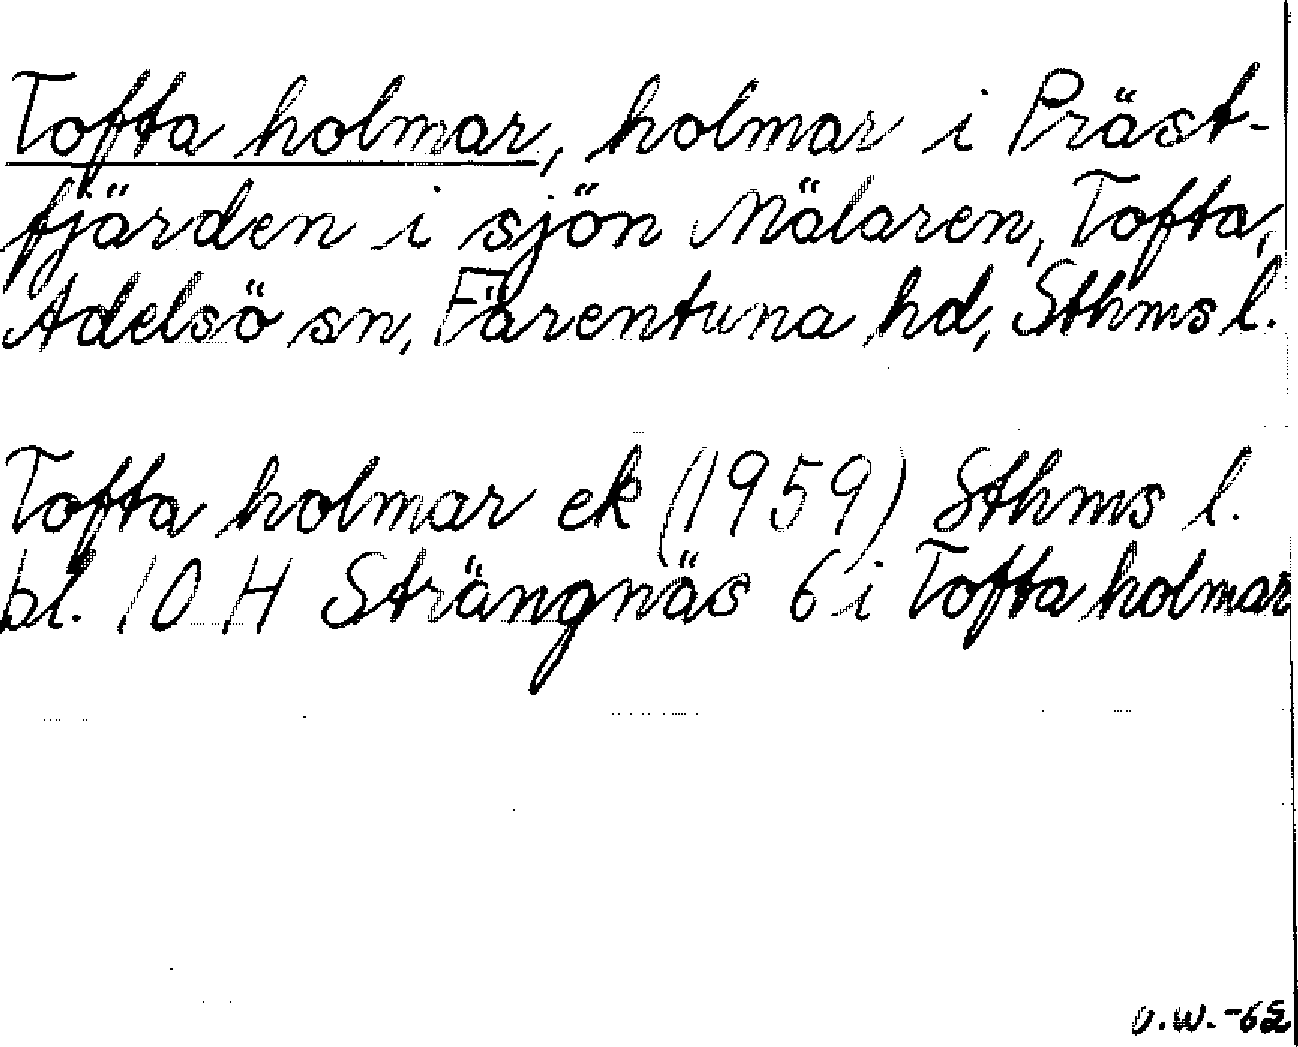 Tofta holmar, holmar i Präst-
fjärden i sjön Mälaren, Tofta,
Adelsö sn, Färentuna hd, Sthms l.
Tofta holmar ek (1959) Sthms l.
bl. 10 H Strängnäs 6 i Tofta holmar
O.W.-62